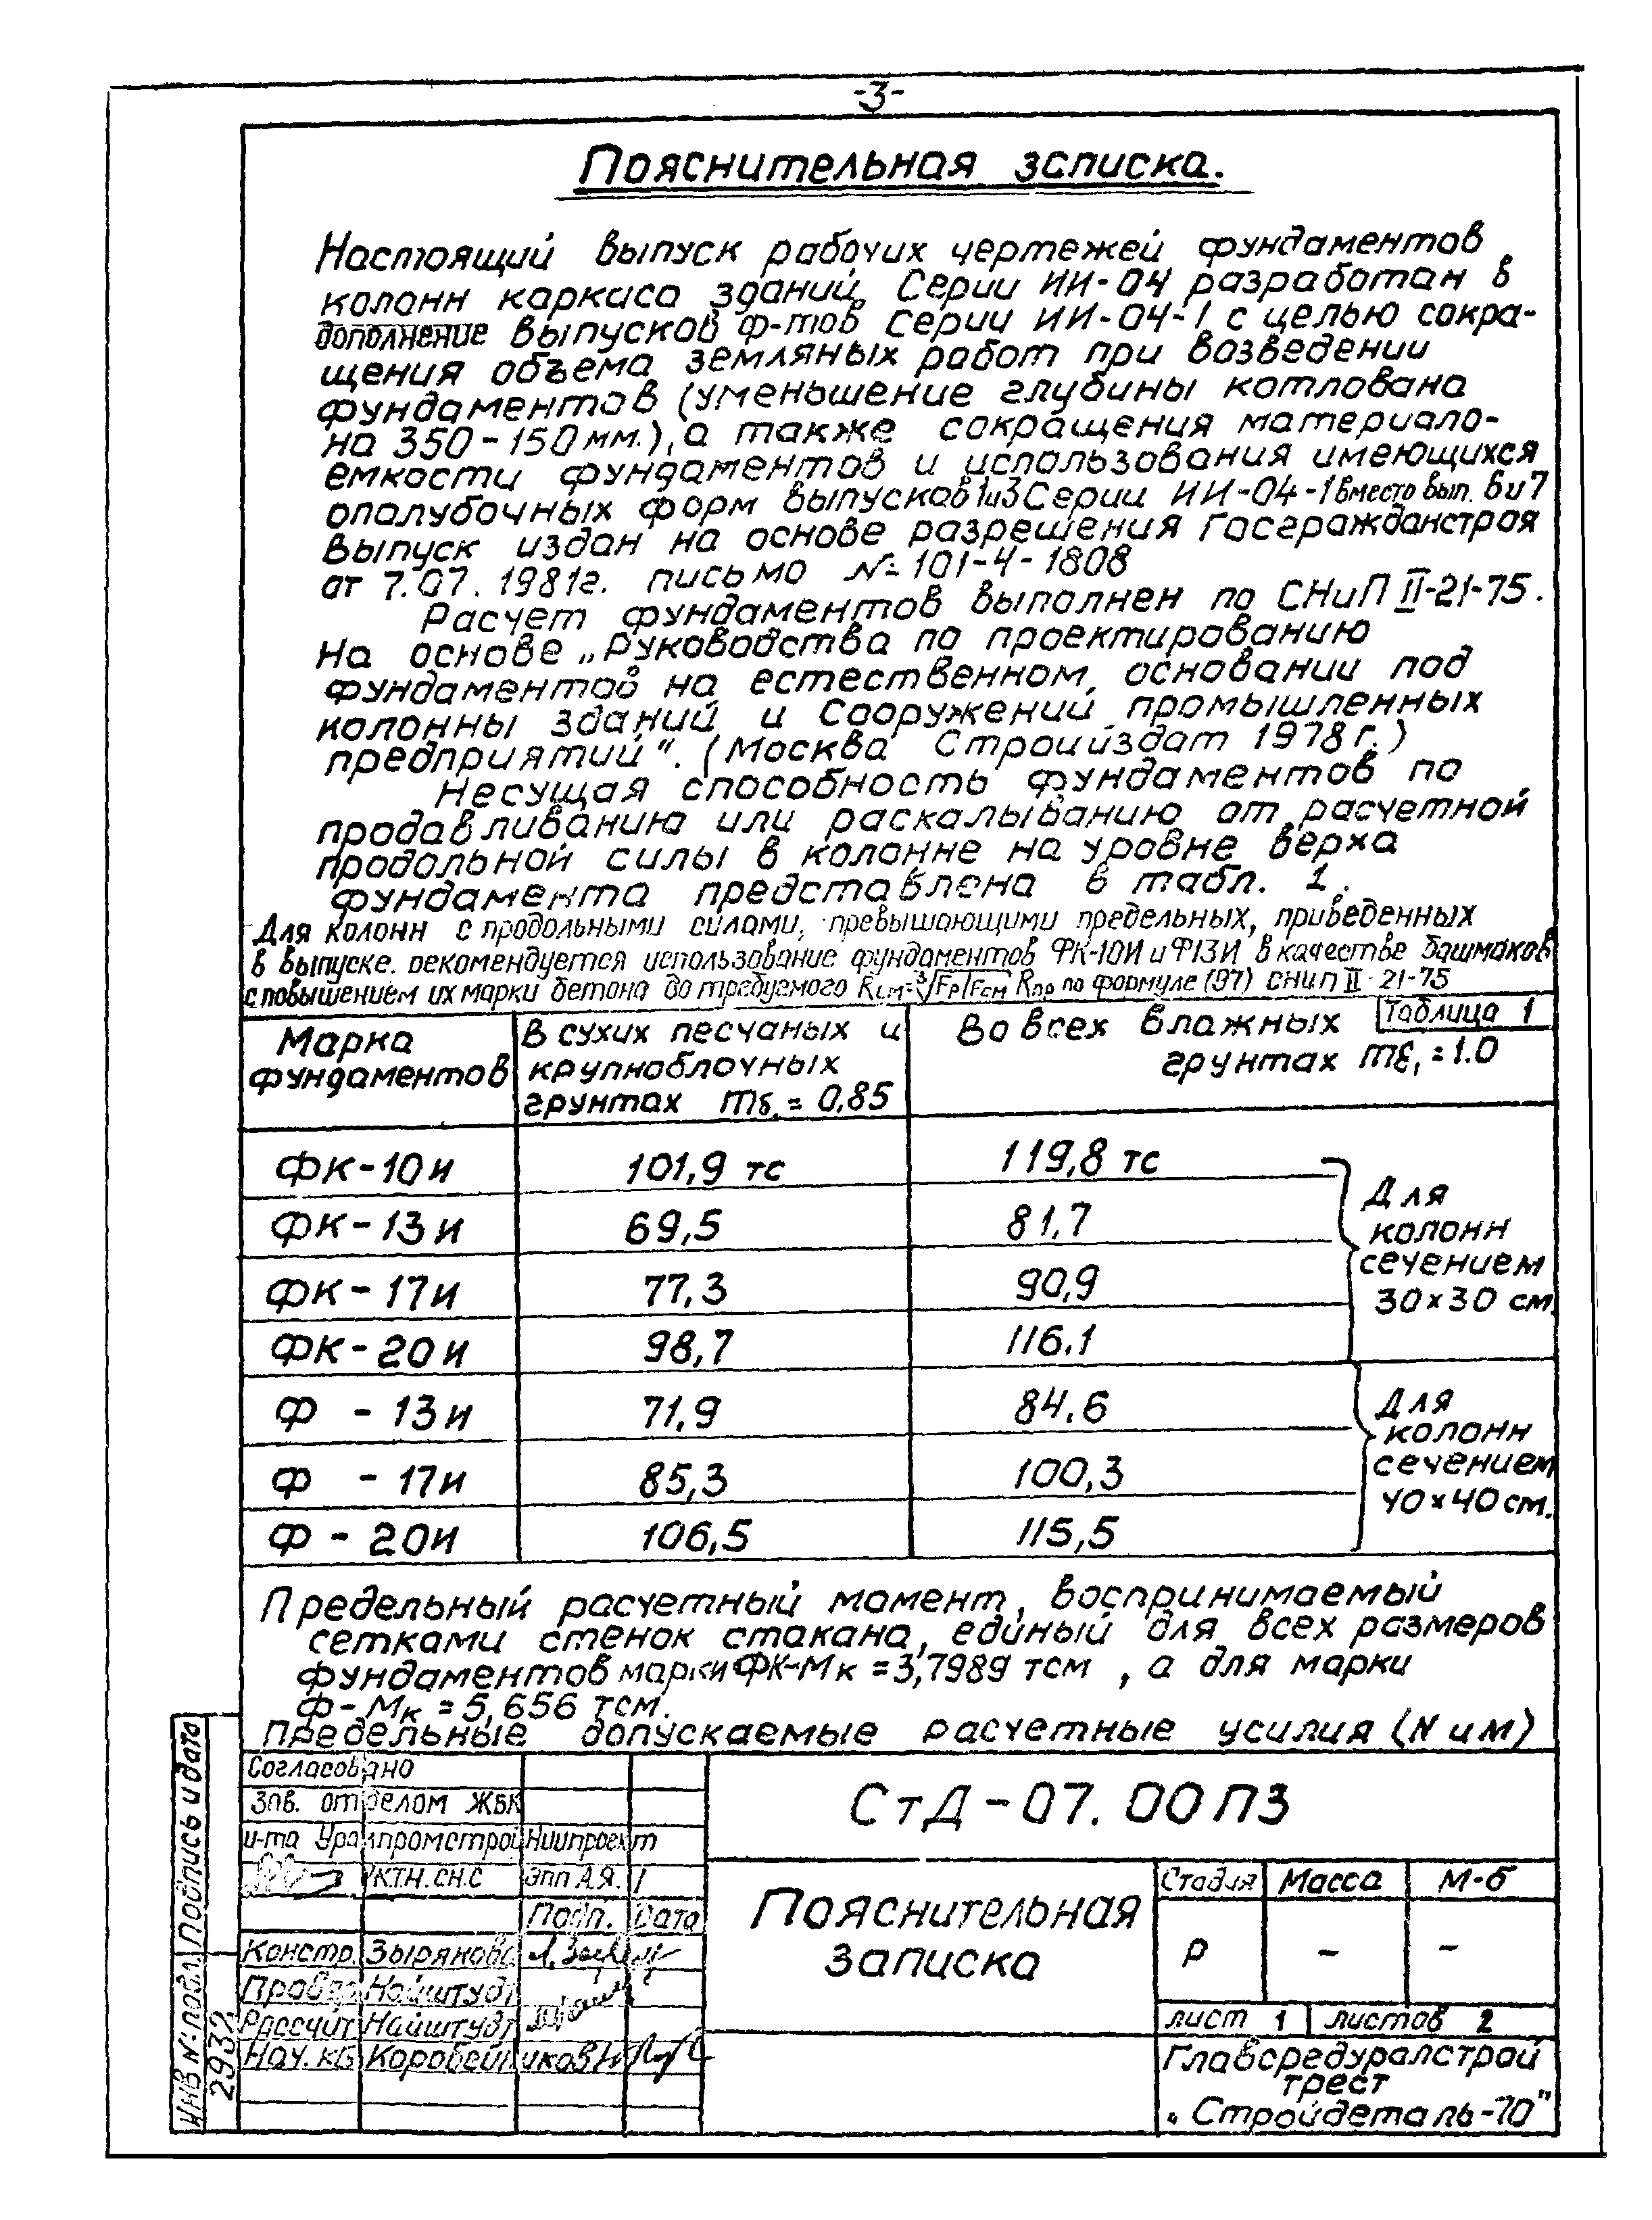 -3-
Пояснительная записка.
Настоящий выпуск рабочих чертежей фундаментов
колонн каркаса зданий Серии ИИ-04 разработан в
дополнение выпусков ф-тов Серии ИИ-04-1 с целью сокра-
щения объема земляных работ при возведении
фундаментов (уменьшение глубины котлована
на 350-150мм.), а также сокращения материало-
емкости фундаментов и использования имеющихся
опалубочных форм выпусков 1и3 Серии ИИ-04-1 вместо вып. 6и7
выпуск издан на основе разрешения Госгражданстроя
от 7.07.1981г. письмо № 101-4-1808
Расчет фундаментов выполнен по СНиП II-21-75.
На основе „Руководства по проектированию
фундаментов на естественном основании под
колонны зданий и сооружений промышленных
предприятий". (Москва Стройиздат 1978г.)
Несущая способность фундаментов по
продавливанию или раскалыванию от расчетной
продольной силы в колонне на уровне верха
фундамента представлена в табл. 1.
Для колонн с продольными силами, превышающими предельных, приведенных
в выпуске. рекомендуется использование фундаментов ФК-10И и Ф13И в качестве башмаков
с повышением их марки бетона до требуемого Rсм=³√Fр/Fсм Rпр по формуле (97) СНиП II-21-75
Таблица 1
Марка фундаментов
В сухих песчаных и крупноблочных грунтах mб1 = 0,85
Во всех влажных грунтах mб1 = 1.0
ФК-10и 101,9 тс 119,8 тс
ФК-13и 69,5 81,7
ФК-17и 77,3 90,9
ФК-20и 98,7 116.1
Для колонн сечением 30×30 см.
Ф -13и 71,9 84.6
Ф -17и 85,3 100,3
Ф -20и 106,5 115,5
Для колонн сечением 40×40см.
Предельный расчетный момент, воспринимаемый
сетками стенок стакана, единый для всех размеров
фундаментов марки ФК-Мк =3,7989 тсм, а для марки
Ф-Мк =5,656 тсм.
Предельные допускаемые расчетные усилия (N и М)
Согласовано
Зав. отделом ЖБК
и-та Уралпромстройниипроект
КТН.СНС Эпп А.Я.
Подп. Дата
Констр. Зырянова
Провер Найштудт
Рассчит Найштудт
Нач. КБ Коробейников
СтД-07.00ПЗ
Пояснительная
записка
Стадия Масса М-б
Р - -
лист 1 листов 2
Главсредуралстрой
трест
„Стройдеталь-70"
Подпись и дата
Инв № подл.
2932